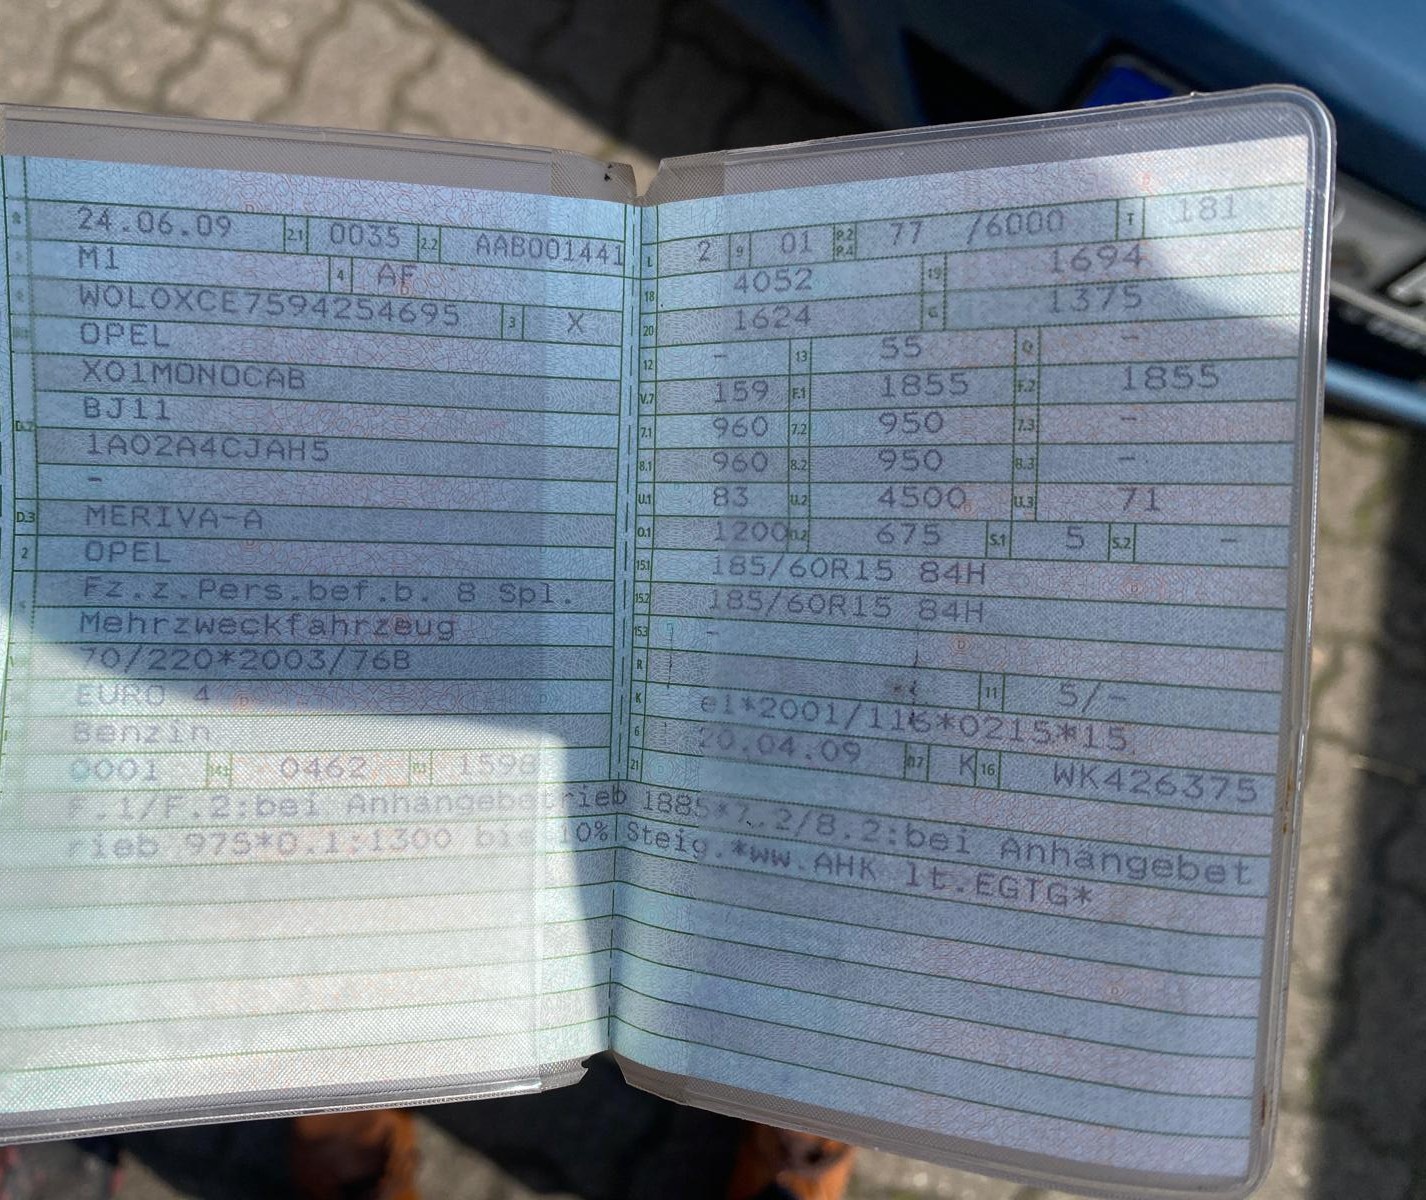 24.06.09 2.1 0035 2.2 AAB001441
M1 4 AF
W0L0XCE7594254695 3 X
OPEL
X01MONOCAB
BJ11
1A02A4CJAH5
-
D.3 MERIVA-A
2 OPEL
Fz.z.Pers.bef.b. 8 Spl.
Mehrzweckfahrzeug
70/220*2003/76B
EURO 4
Benzin
0001 14.1 0462 P.1 1598
L 2 9 01 P.2 P.4 77 /6000 T 181
18 4052 19 1694
20 1624 G 1375
12 - 13 55 Q -
V.7 159 F.1 1855 F.2 1855
7.1 960 7.2 950 7.3 -
8.1 960 8.2 950 8.3 -
U.1 83 U.2 4500 U.3 71
O.1 1200 O.2 675 S.1 5 S.2 -
15.1 185/60R15 84H
15.2 185/60R15 84H
15.3 -
R 11 5/-
K e1*2001/116*0215*15
6 20.04.09 17 K 16 WK426375
21
F.1/F.2:bei Anhängebetrieb 1885*7.2/8.2:bei Anhängebet
rieb 975*O.1:1300 bis 10% Steig.*ww.AHK lt.EGTG*